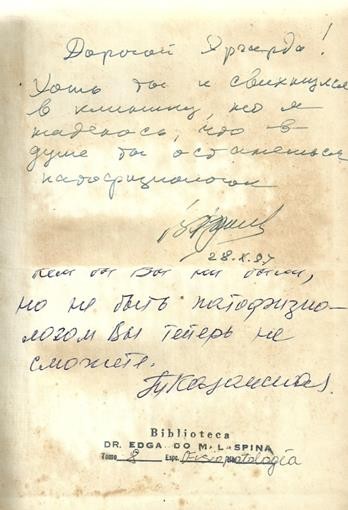 Дорогой Эдгардо!
Хоть ты и свихнулся
в клинику, но я
надеюсь, что в
душе ты останешься
патофизиологом
28.X.87
Кем бы Вы ни были,
но не быть патофизио-
логом Вы теперь не
сможете.
Biblioteca
DR. EDGARDO MALASPINA
Tomo 8 Espc. Fisiopatología